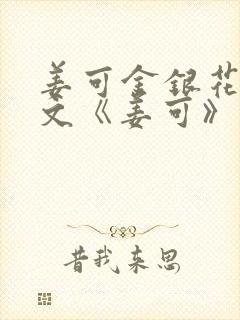 姜可金银花
文《姜可》
昔我来思